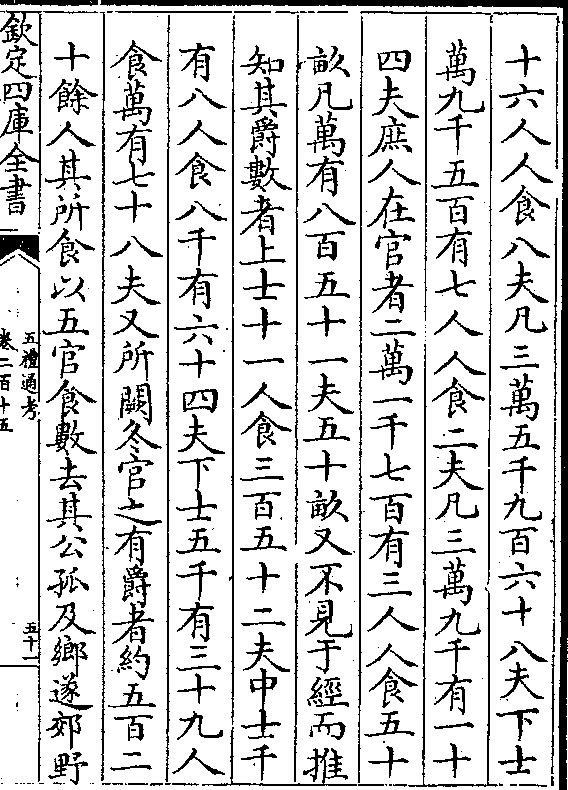 十六人人食八夫凡三萬五千九百六十八夫下士
萬九千五百有七人人食二夫凡三萬九千有一十
四夫庶人在官者二萬一千七百有三人人食五十
畝凡萬有八百五十一夫五十畝又不見于經而推
知其爵數者上士十一人食三百五十二夫中士千
有八人食八千有六十四夫下士五千有三十九人
食萬有七十八夫又所闕冬官之有爵者約五百二
十餘人其所食以五官食數去其公孤及鄉遂郊野
欽定四庫全書
五禮通考
卷二百十五
五十一